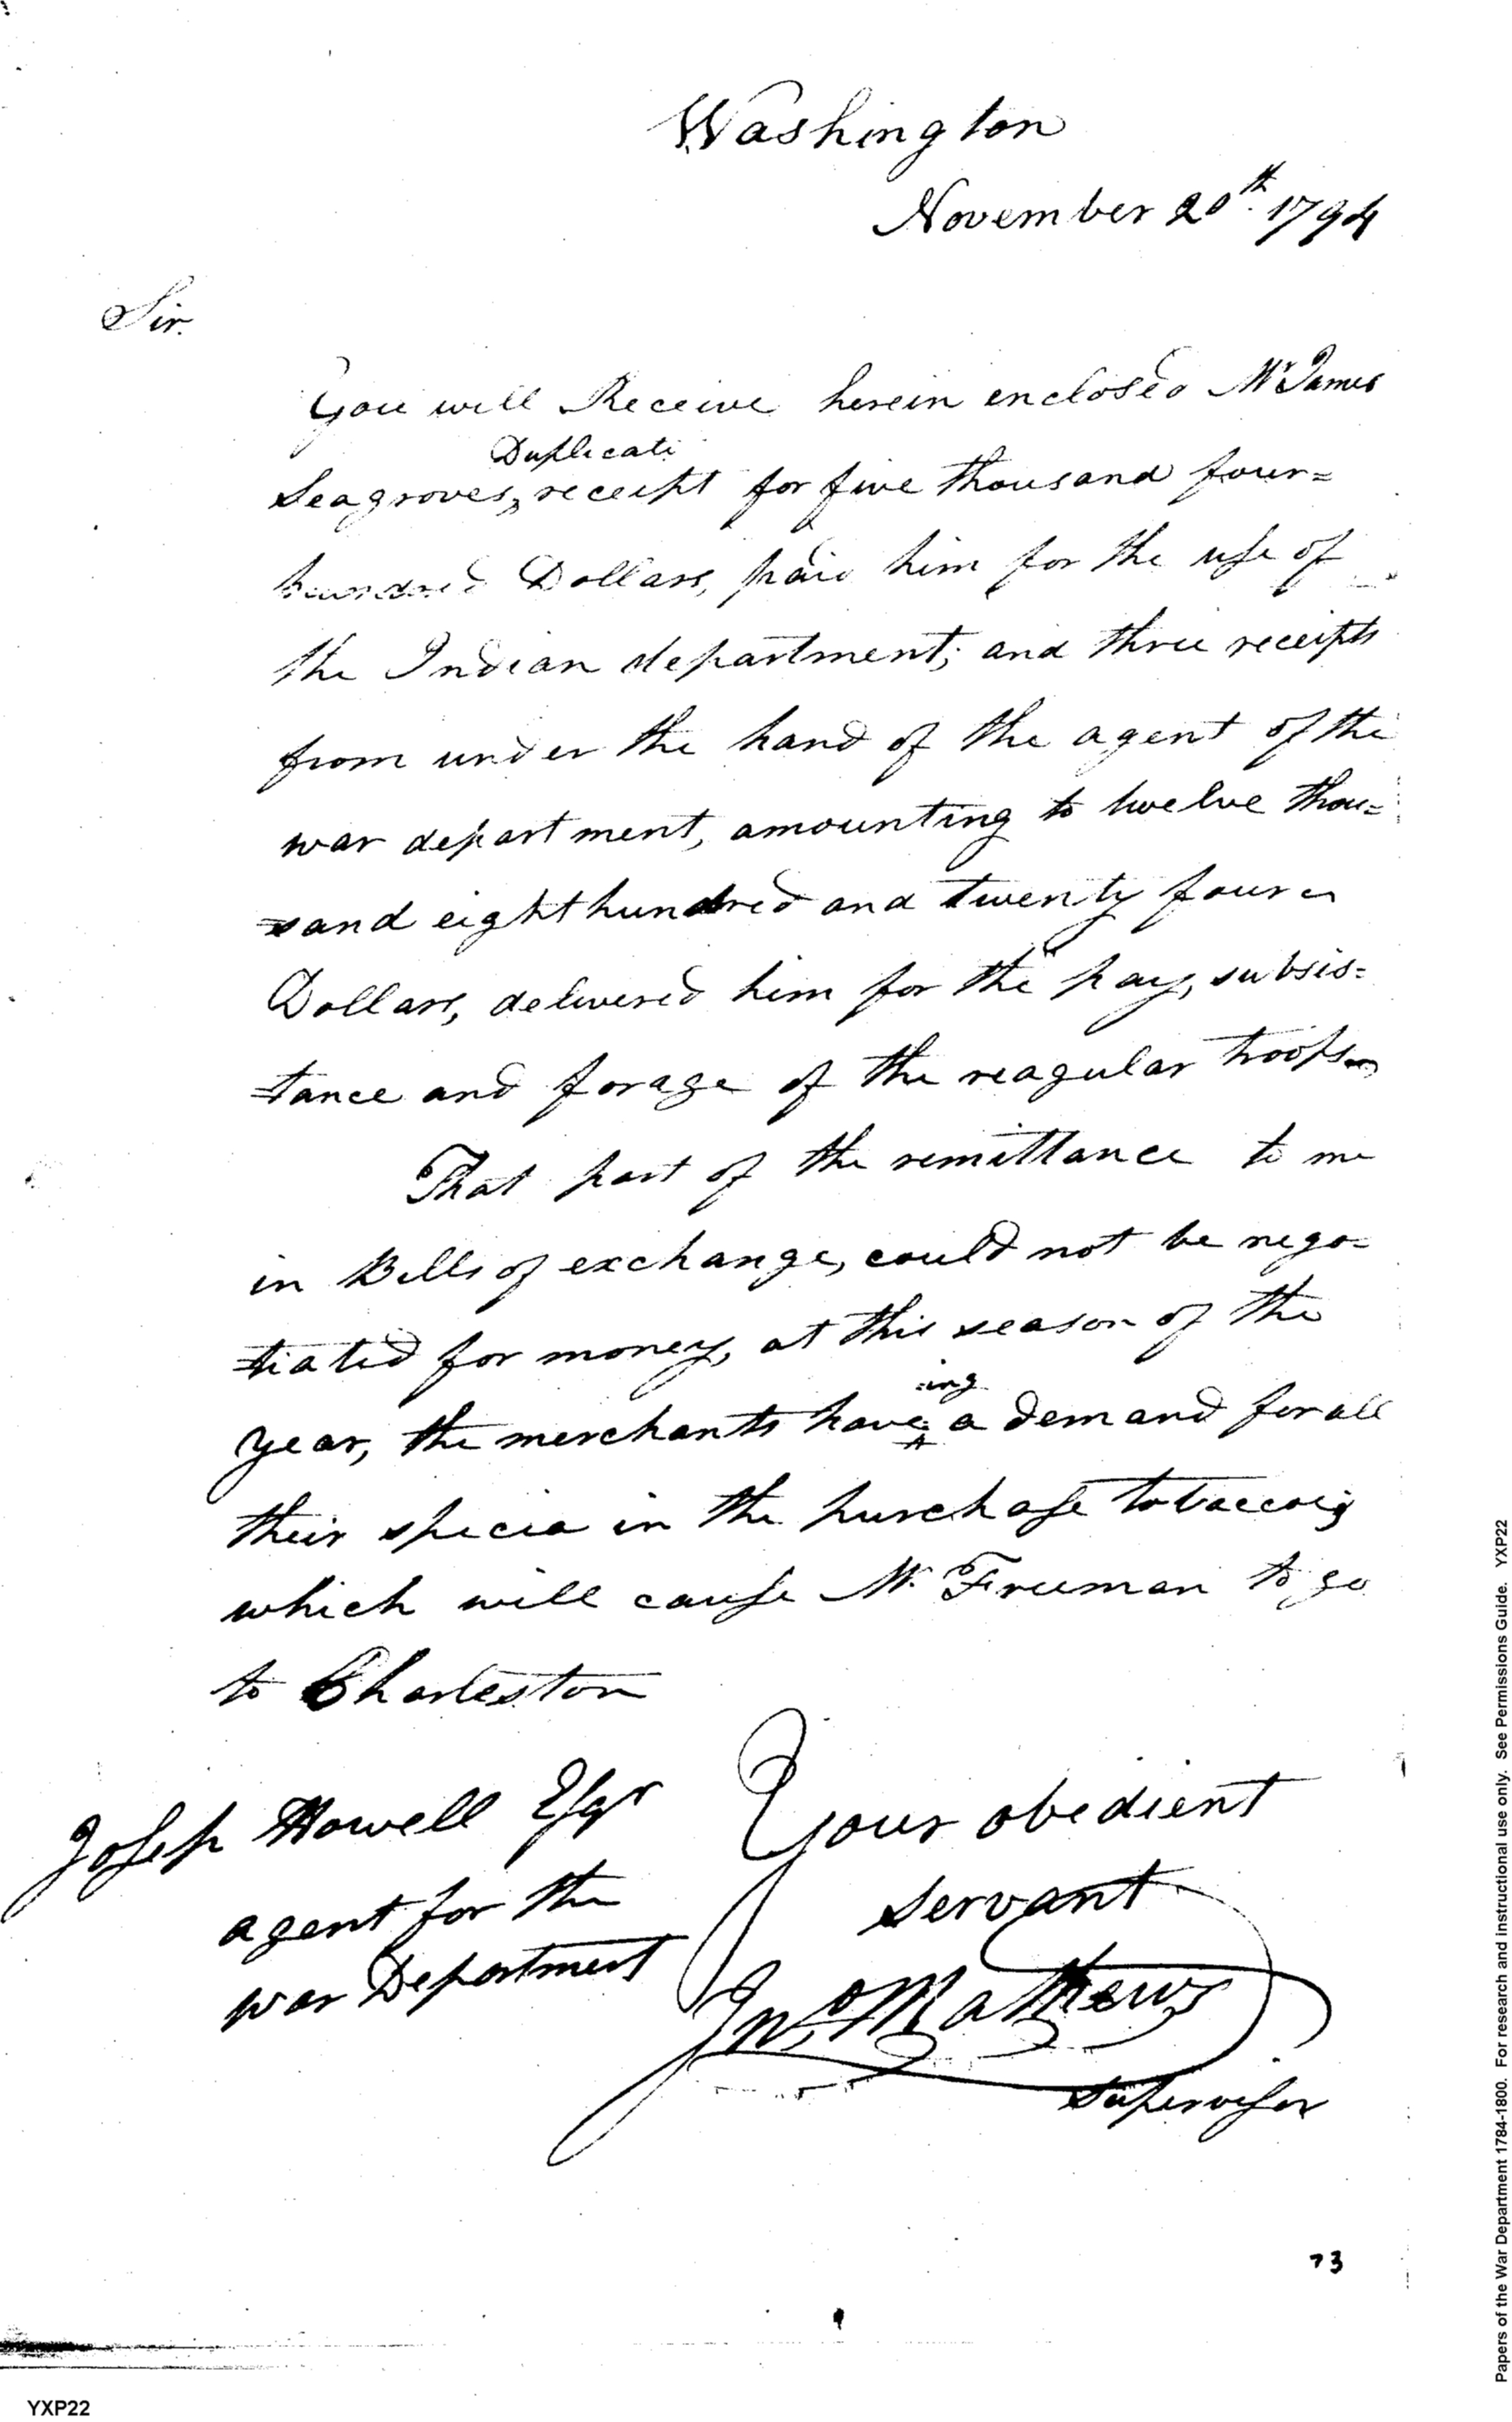 Washington
November 20th. 1794
Sir.
You will Receive herein enclosed Mr James
Duplicate
Seagroves, receipt for five thousand four=
hundred Dollars, paid him for the use of
the Indian department; and three receipts
from under the hand of the agent of the
war department, amounting to twelve thou=
=sand eight hundred and twenty four
Dollars, delivered him for the pay, subsis=
=tance and forage of the reagular troops
That part of the remittance to me
in Bills of exchange, could not be nego=
=tiated for money, at this season of the
=ing
year, the merchants have a demand for all
their specia in the purchase tobacco
which will cause Mr. Freeman to go
to Charleston
Your obedient
servant
Jno. Mathews
Supervisor
Joseph Howell Esqr
agent for the
war Department
73
YXP22
Papers of the War Department 1784-1800. For research and instructional use only. See Permissions Guide. YXP22